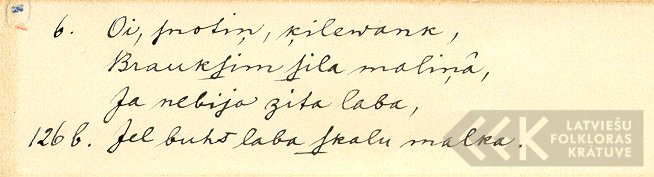 6. Oi, ſnotiņ, ķilewank,
Braukſim ſila maliņâ,
Ja nebija zita laba,
126 b. Jel buhs laba ſkalu malka.
LATVIEŠU
FOLKLORAS
KRĀTUVE